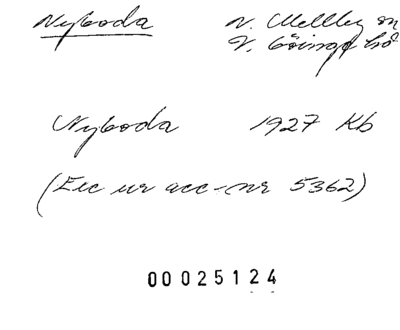 Nyboda N. Mellby sn
V. Göinge hd
Nyboda 1927 Kb
(Exc ur acc-nr 5362)
00025124